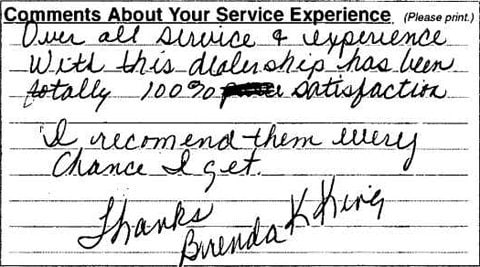 Comments About Your Service Experience (Please print.)
Over all service & experience
With this dealership has been
totally 100% satisfaction
I recomend them every
Chance I get.
Thanks
Brenda K King